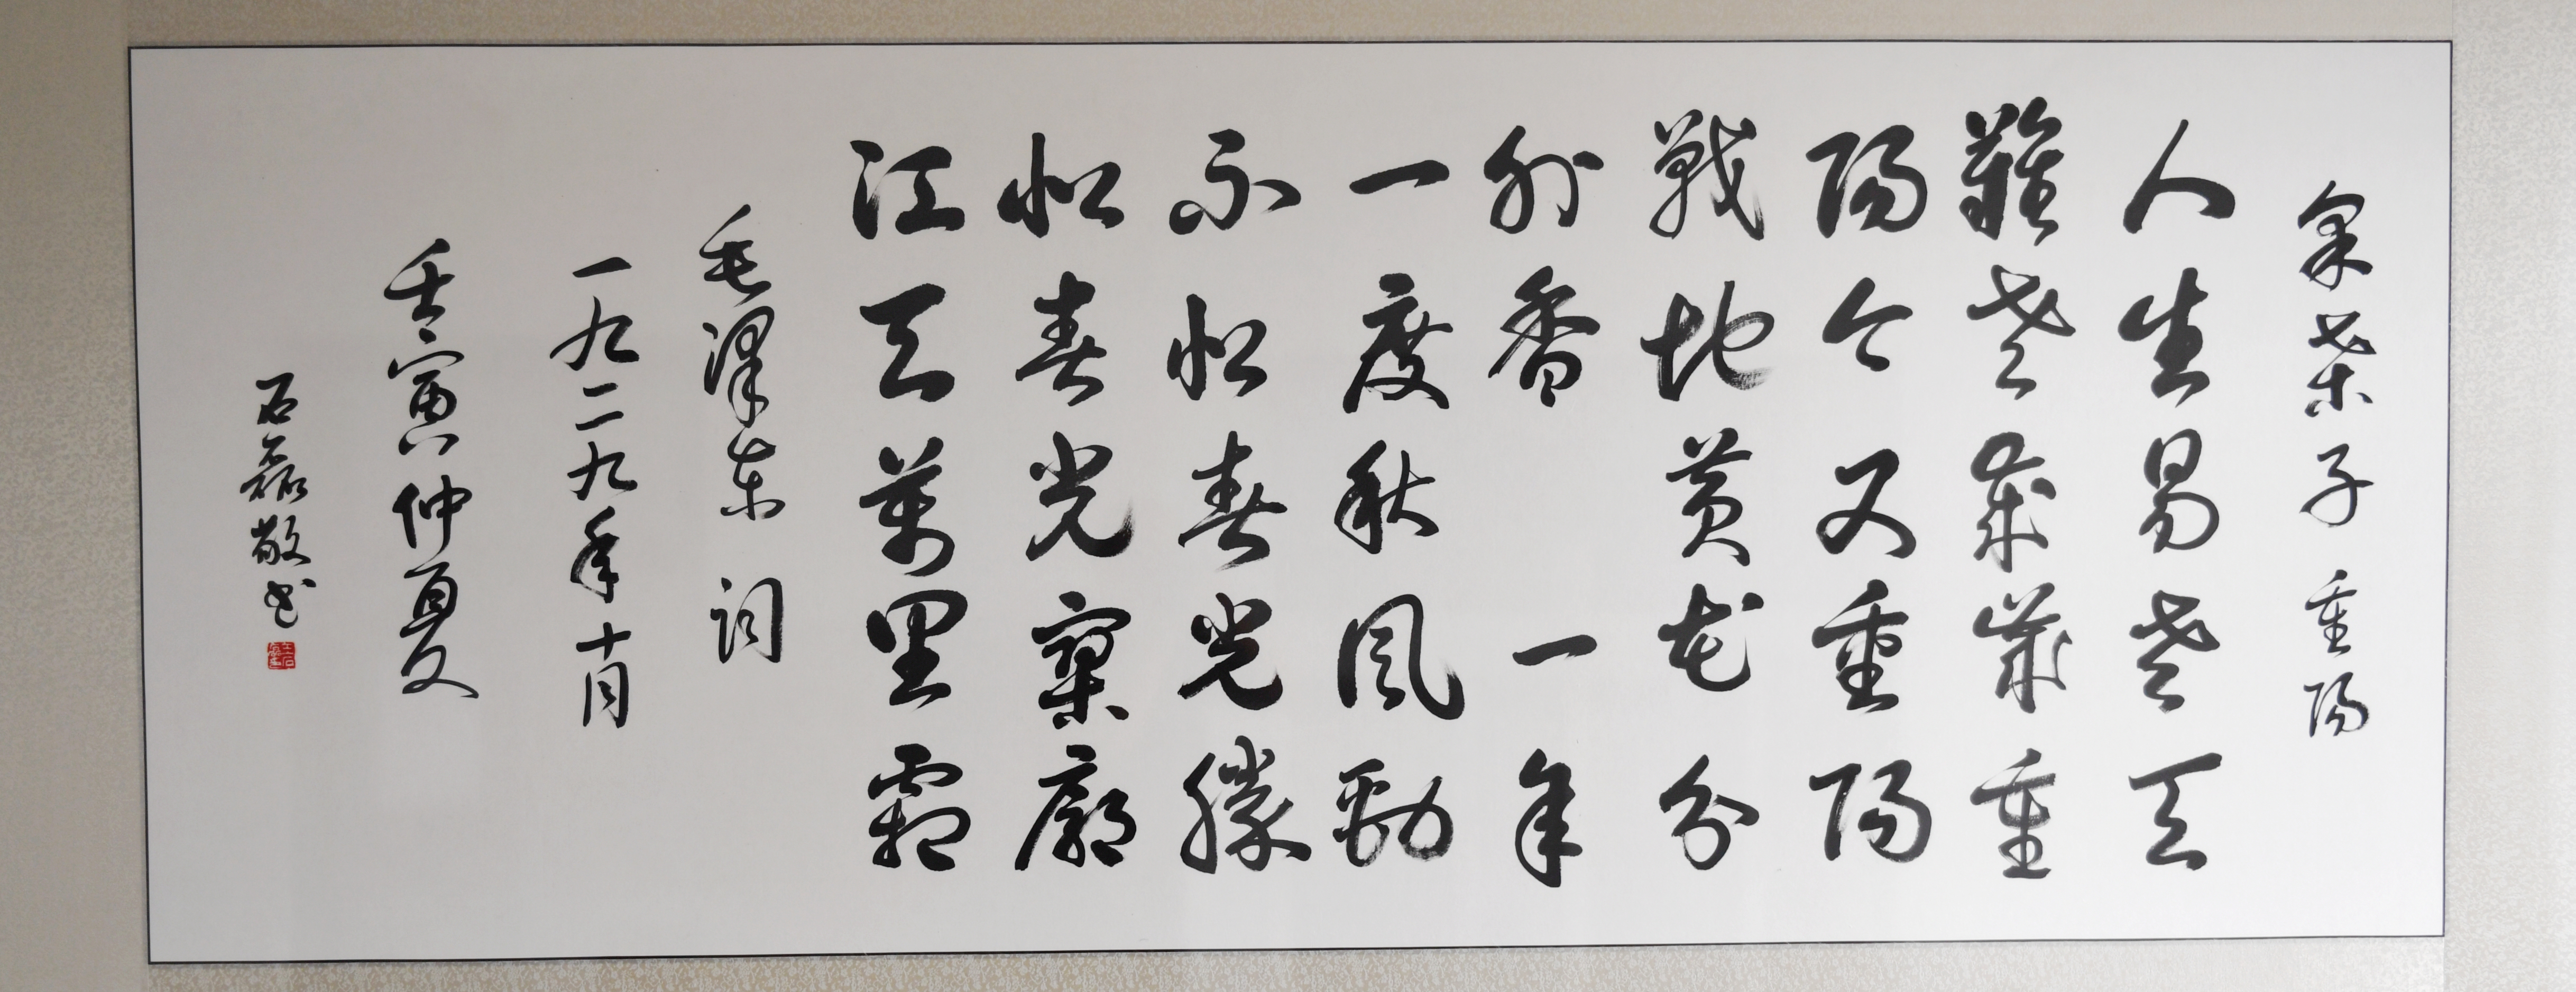 采桑子 重陽
人生易老天
難老歲歲重
陽今又重陽
戰地黃花分
外香 一年
一度秋風勁
不似春光勝
似春光寥廓
江天萬里霜
毛澤东 词
一九二九年十月
壬寅仲夏
石磊敬书